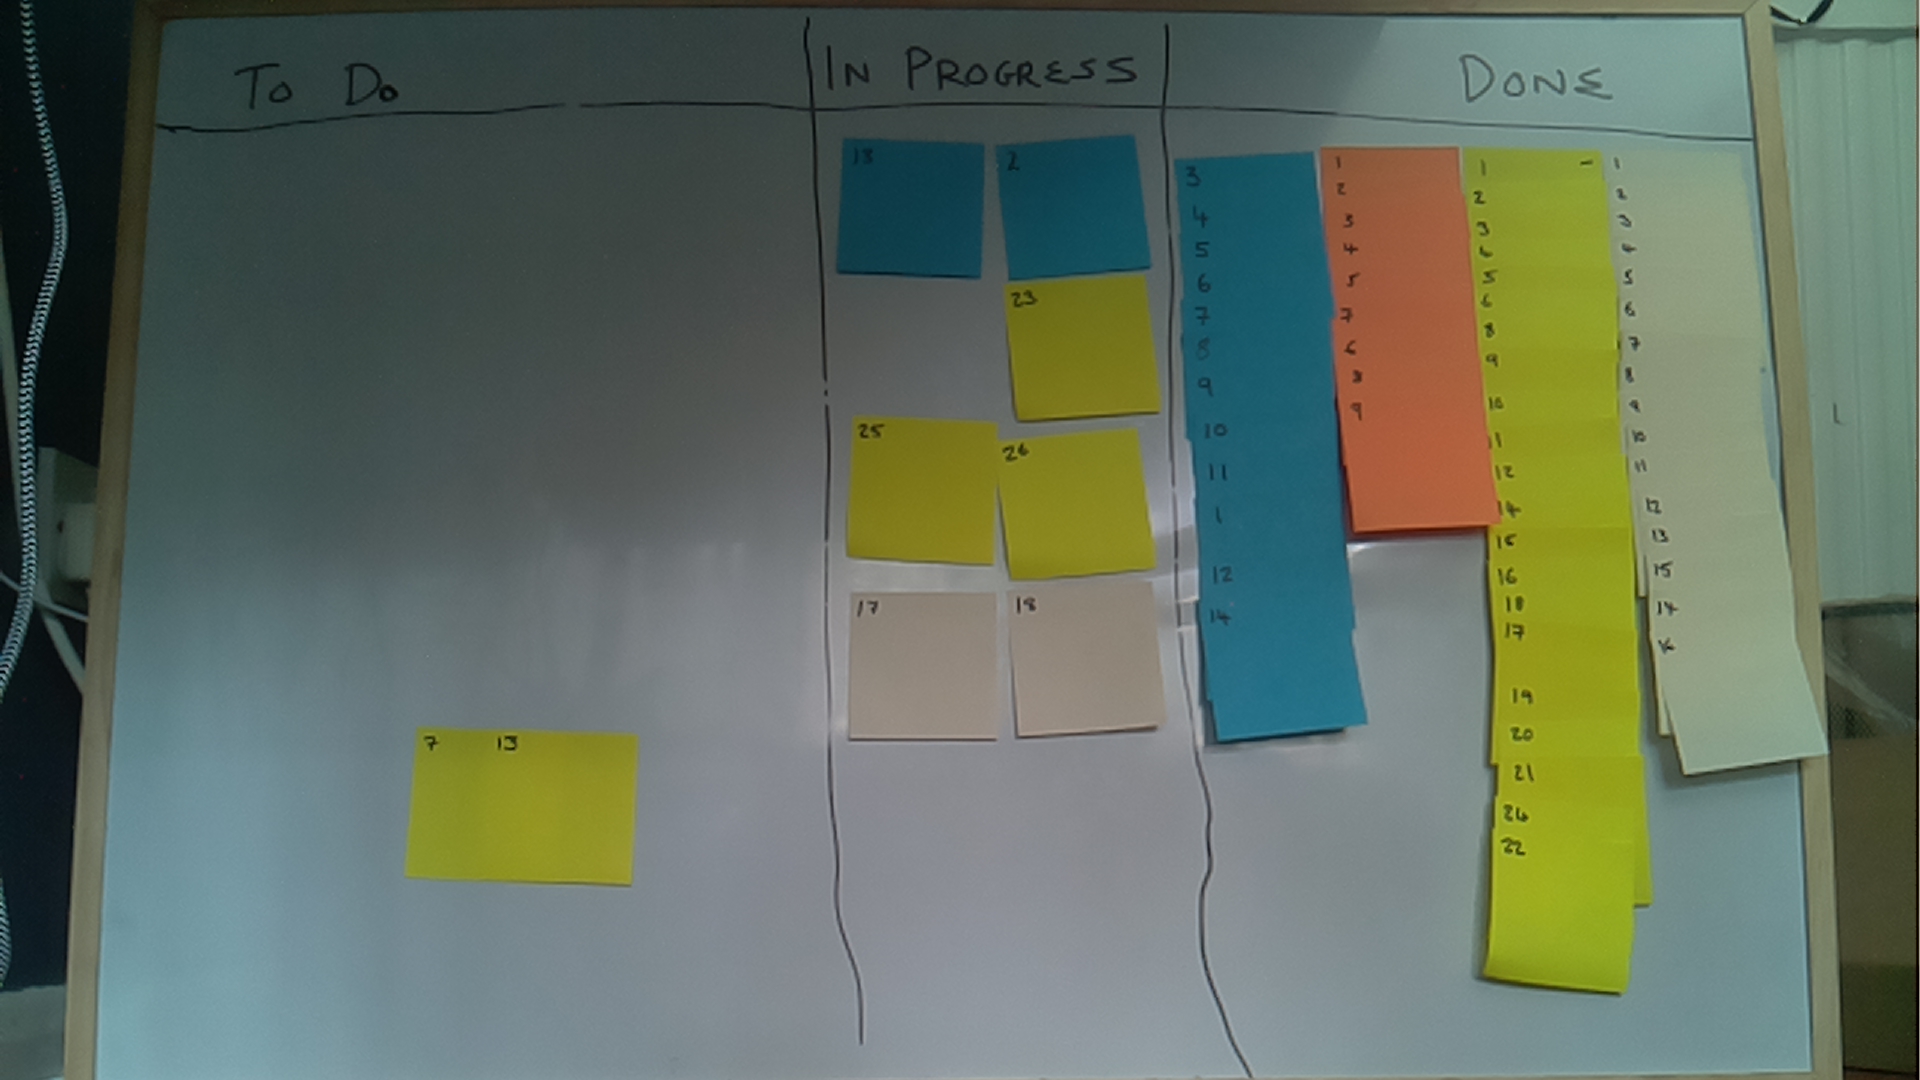 To Do
IN PROGRESS
DONE
7 13
13
2
23
25
26
17
18
3
4
5
6
7
8
9
10
11
1
12
14
1
2
3
4
5
7
6
8
9
1
2
3
4
5
6
8
9
10
11
12
14
15
16
18
17
19
20
21
24
22
1
2
3
4
5
6
7
8
9
10
11
12
13
15
14
16